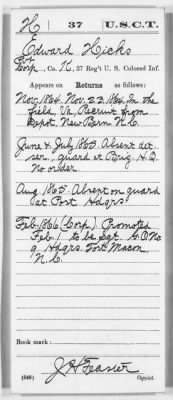 H | 37 | U.S.C.T.
Edward Hicks
Pvt
Corp., Co. K, 37 Reg't U. S. Colored Inf.
Appears on Returns as follows:
Nov. 1864. Nov. 22, 1864, In the
field, Va, Recruit from
Depot, New Bern N.C.
June & July 1865. Absent det.
ser., Guard at Brig. H.Q.
No order
Aug 1865. Absent on guard
at Post Hdqrs
Feb 1866 (Corp.) Promoted
Feb. 1 to be Sgt. G.O. No
9 Hdqrs. Fort Macon,
N.C.
Book mark:
(546)
Copyist.